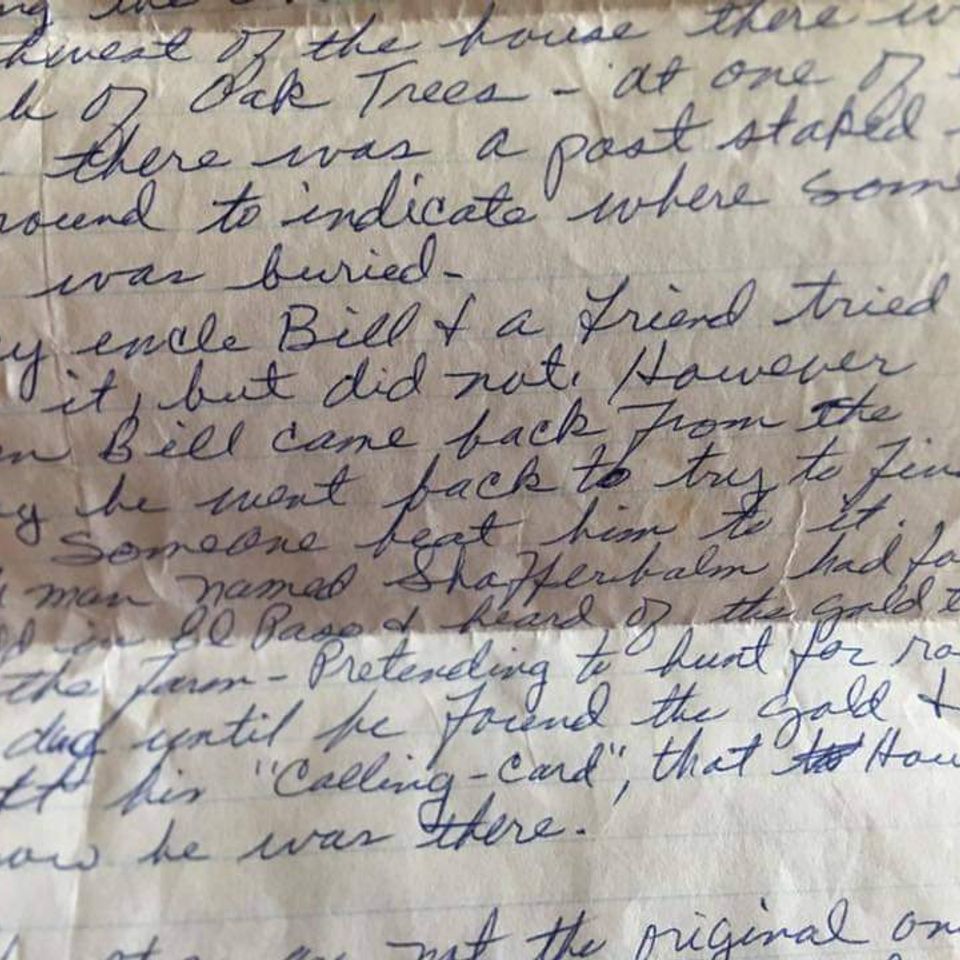 the
thwest of the house there w
h of Oak Trees - at one of
there was a post staked -
round to indicate where some
was buried-
y uncle Bill & a friend tried
it, but did not. However
en Bill came back from the
y he went back to try to fin
Someone beat him to it.
man named Shafferbalm had fo
in El Paso & heard of the gold t
the farm - Pretending to hunt for ra
dug until he found the gold &
ft his "Calling-Card", that How
ow he was there.
not the original on